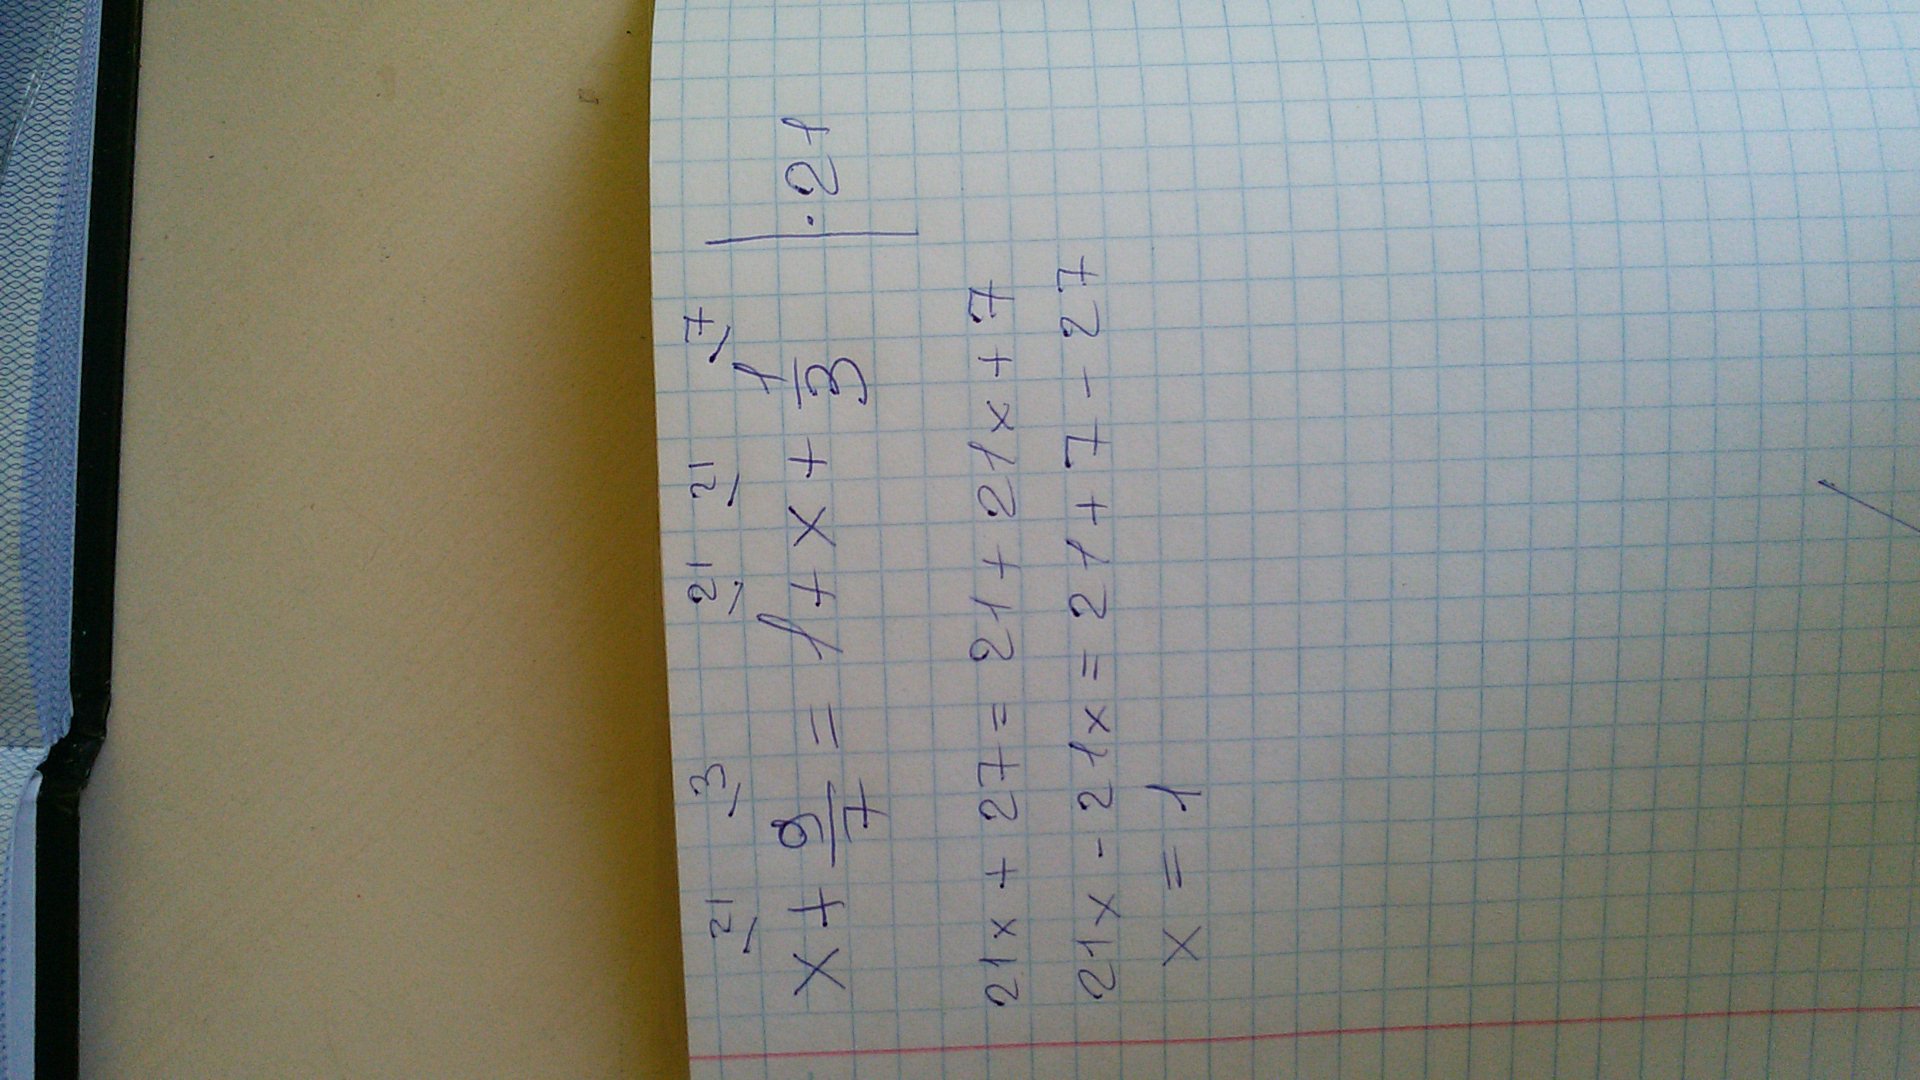 21 3 21 21 7
x + 9/7 = 1 + x + 1/3 | · 21
21x + 27 = 21 + 21x + 7
21x - 21x = 21 + 7 - 27
x = 1